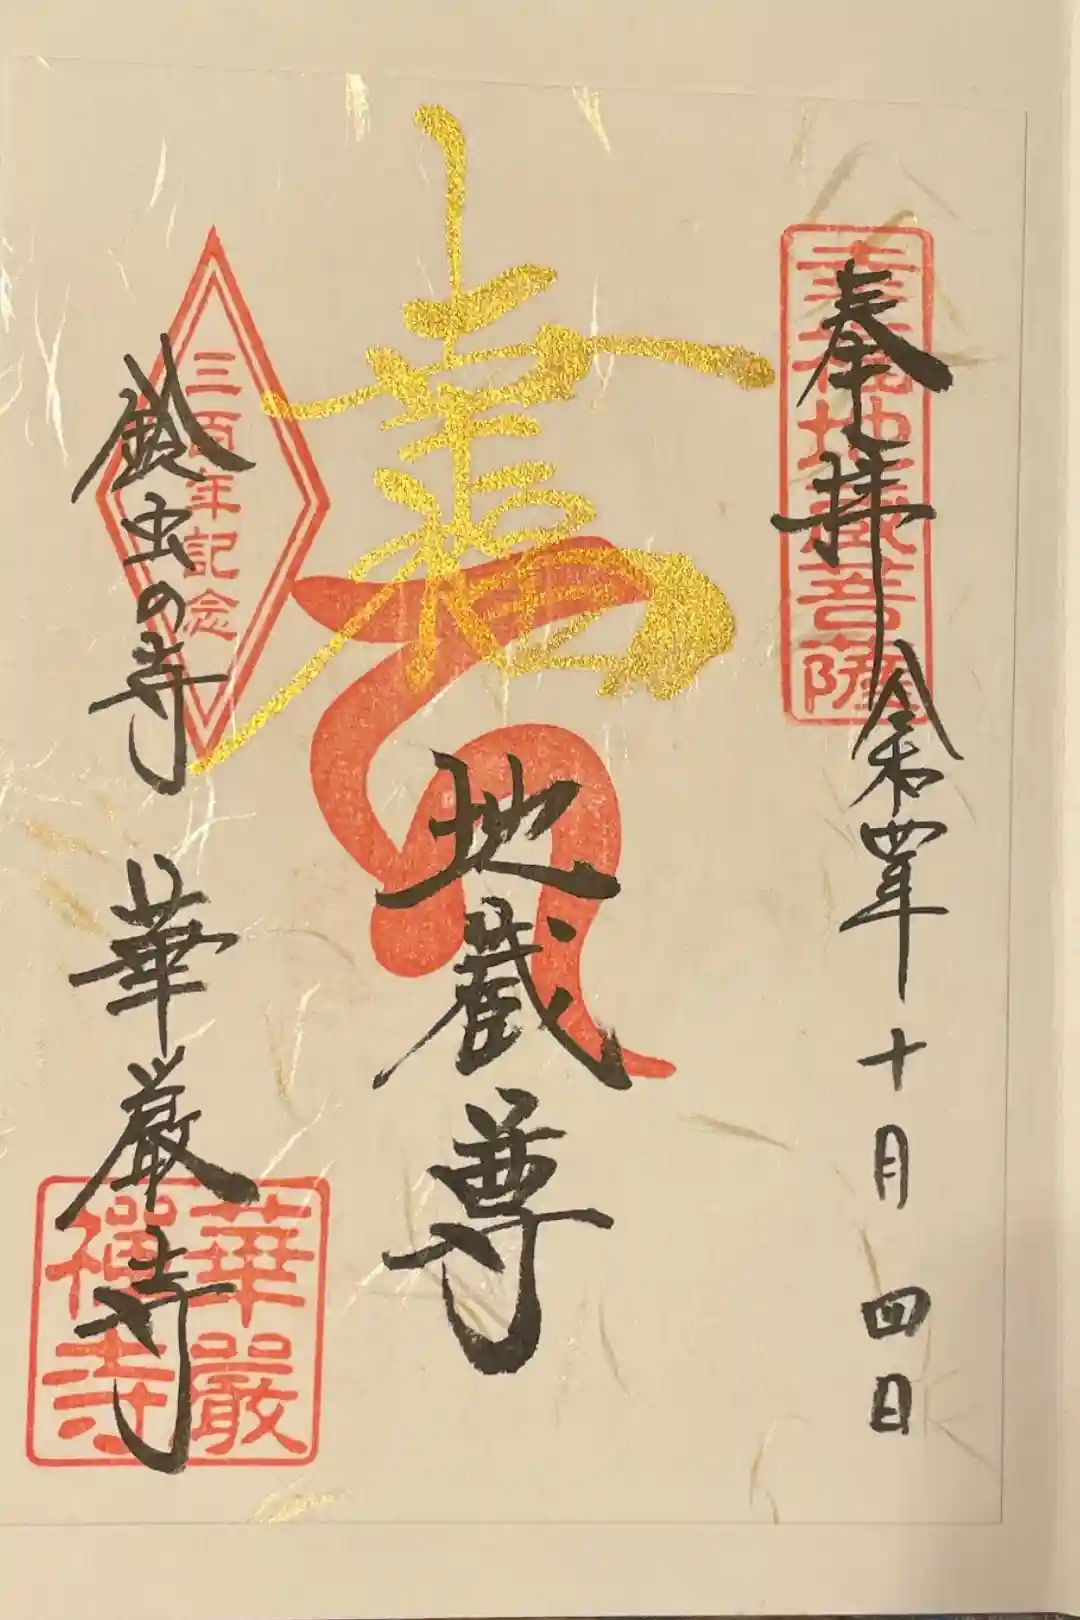 奉拝
令和四年十月四日
幸福地蔵菩薩
寿
地蔵尊
三百年記念
鈴虫の寺
華厳寺
華嚴
禅寺